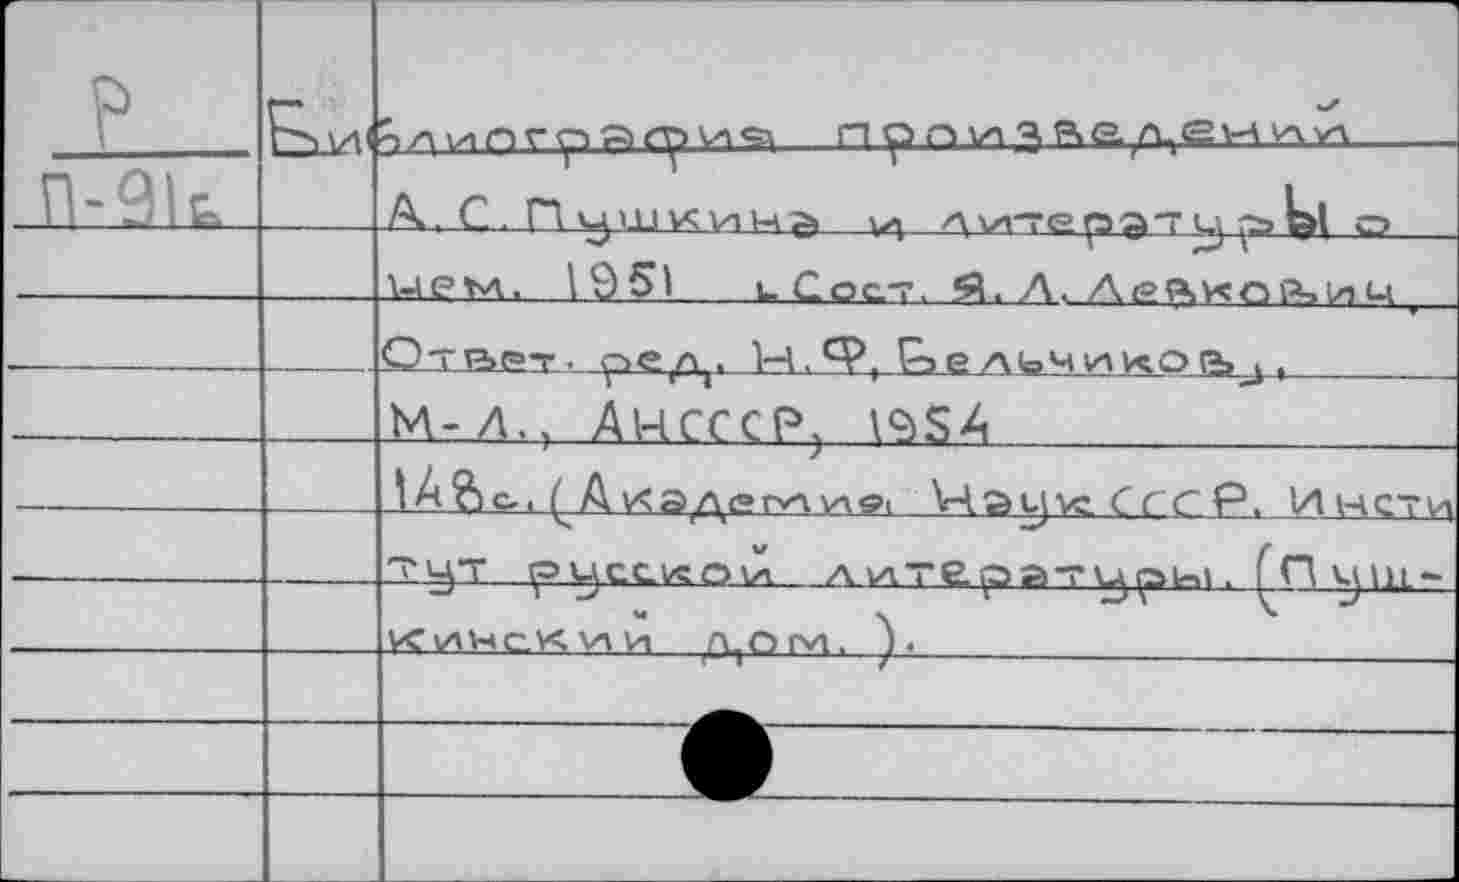 Р
П-91б
Библиография произведений
А. С. Пушкина и литературы о
нем. 1951 Сост. Я. Л. Левкович,
Ответ. ред. Н. Ф. Бельчиков,
М-Л., АНСССР, 1954
148с. (Академия Наук СССР. Инсти
тут русской литературы. (Пуш-
кинский дом.).